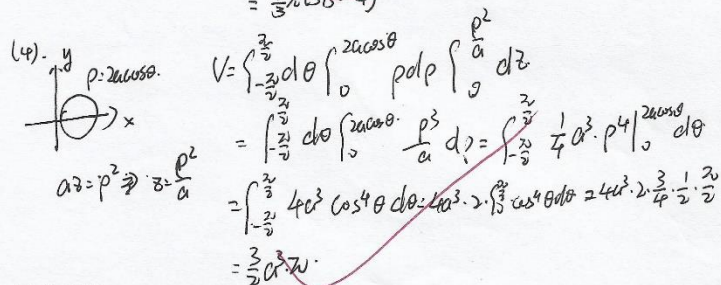 (4). y ρ=2acosθ. x
V=∫_{-π/2}^{π/2} dθ ∫_0^{2acosθ} ρdρ ∫_0^{ρ²/a} dz.
= ∫_{-π/2}^{π/2} dθ ∫_0^{2acosθ} ρ³/a dρ = ∫_{-π/2}^{π/2} 1/4 a³·ρ⁴|_0^{2acosθ} dθ
az=ρ² ⇒ z=ρ²/a
=∫_{-π/2}^{π/2} 4a³ cos⁴θ dθ=4a³·2·∫_0^{π/2} cos⁴θdθ =4a³·2·3/4·1/2·π/2
=3/2 a³π.